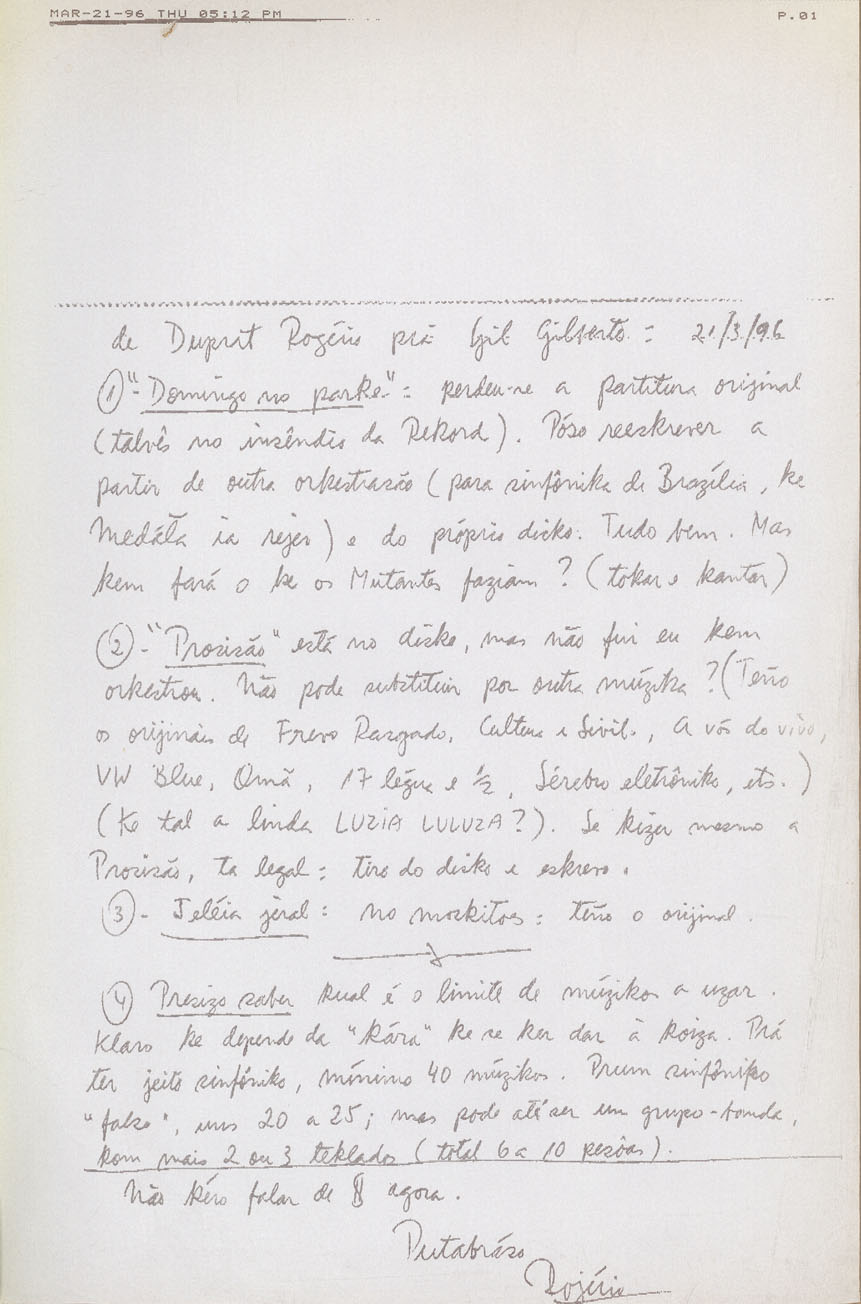 MAR-21-96 THU 05:12 PM P.01
de Duprat Rogério prá Gil Gilberto = 21/3/96
① "Domingo no parke" = perdeu-se a partitura orijinal
(talvês no insêndio da Rekord). Póso reeskrever a
partir de outra orkestrasão (para sinfônika de Brazília, ke
Medáĩa ia rejer) e do próprio disko. Tudo bem. Mas
kem fará o ke os Mutantes faziam? (tokar e kantar)
② - "Prosisão" está no disko, mas não fui eu kem
orkestrou. Não pode substituir por outra múzika? (Teño
os orijinais de Frevo Razgado, Cultura e Sivil., A vós do vivo,
VW Blue, Omã, 17 légua e 1/2, Sérebro eletrôniko, ets.)
(Ke tal a linda LUZIA LULUZA?). Se kizer mesmo a
Prosisão, ta legal = tiro do disko e eskrevo.
③ - Jeléia jeral = no moskitos = teño o orijinal.
④ Presizo saber kual é o limite de múzikos a uzar.
Klaro ke depende da "kára" ke se ker dar à koiza. Prá
ter jeito sinfôniko, mínimo 40 múzikos. Prum sinfôniko
"falso", uns 20 a 25; mas pode até ser um grupo-banda,
kom mais 2 ou 3 teklados (total 6 a 10 pesôas).
Não kéro falar de $ agora.
Putabráso
Rojério